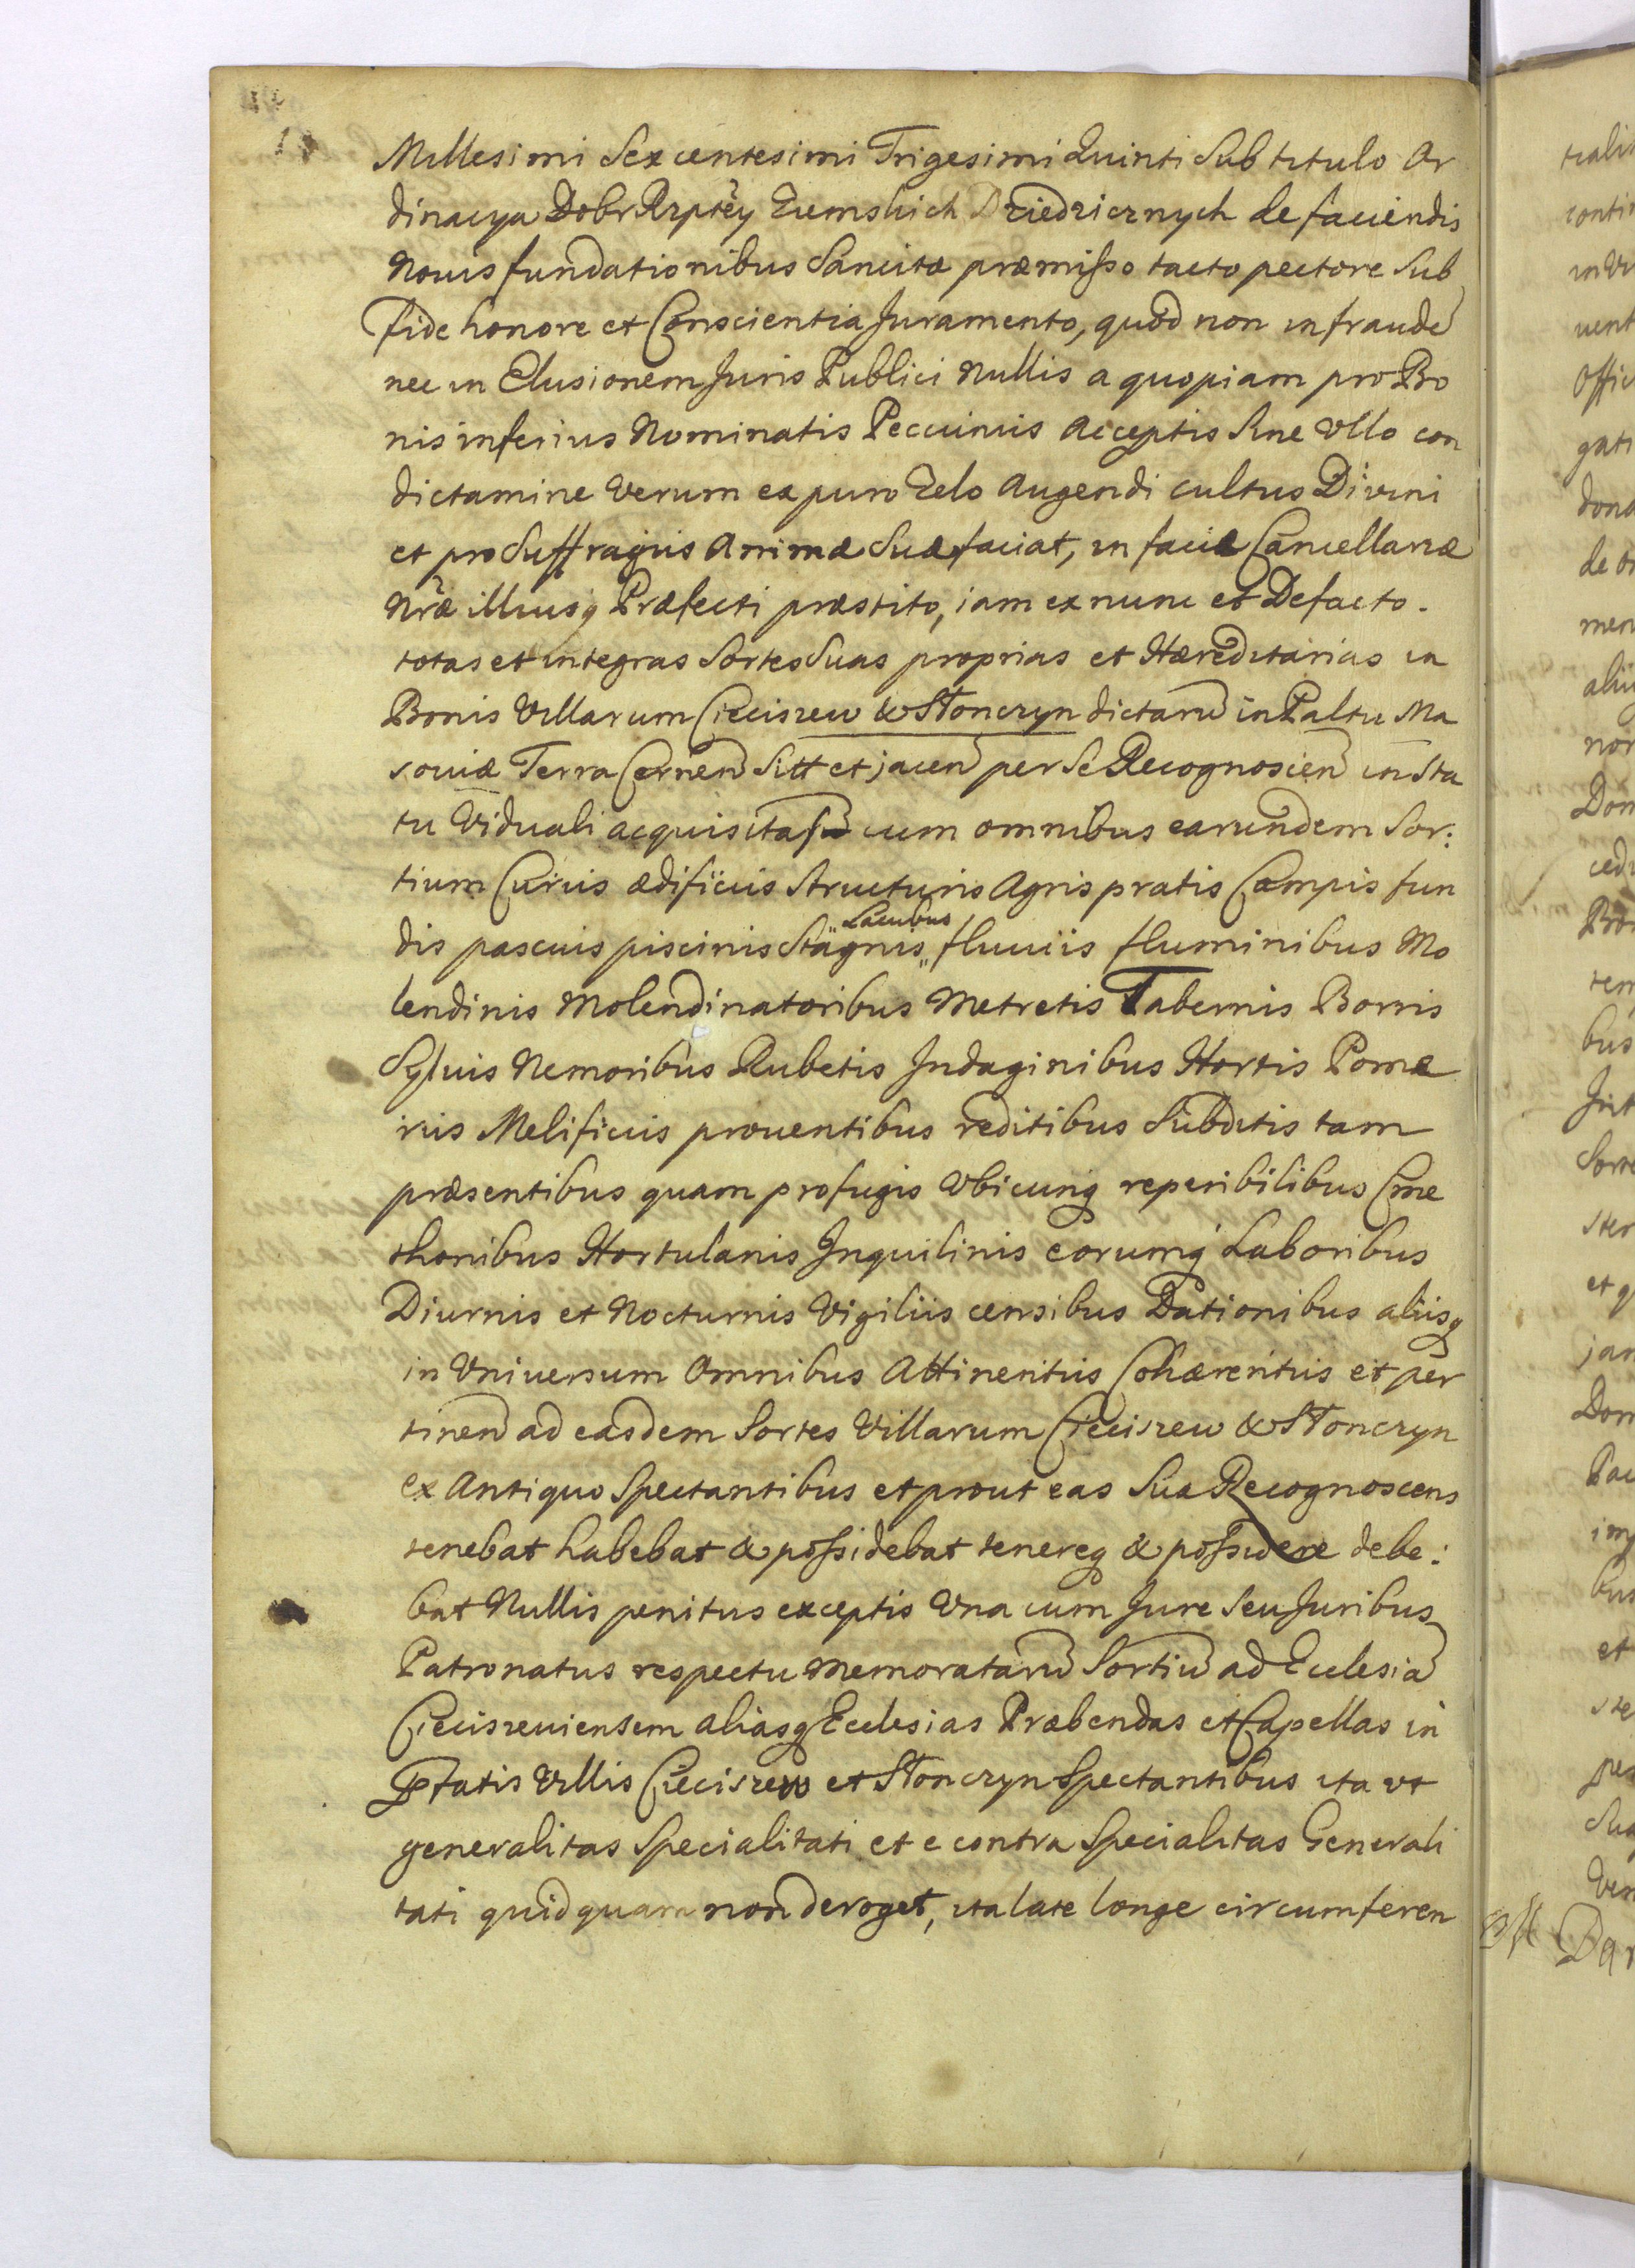 Millesimi Sexcentesimi Trigesimi Quinti Sub titulo Or
dinacya Dobr Rzptēy Ziemskich Dziedzicznych de faciendis
Nouis fundationibus Sancitæ præmisso tacto pectore Sub
Fide honore et Conscientia Juramento, quod non in fraudē
nec in Elusionem Juris Publici Nullis a quopiam pro Bo
nis inferius Nominatis Peccuniis Acceptis Sine Vllo con
dictamine Verum ex puro Zelo Augendi cultus Divini
et pro Suffragiis Animæ Suæ faciat, in facie Cancellariæ
Nr̃æ illiusq Præfecti præstito, iam ex nunc et Defacto.
totas et integras Sortes Suas proprias et Hæreditarias in
Bonis Villarum Cieciszew & Słonczyn dictarū in Paltu Ma
souiæ Terra Cernen Sitt et jacen per Se Recognoscen in Sta
tu Viduali acquisitas cum omnibus earundem Sor:
tium Curiis ædificiis Structuris Agris pratis Campis fun
dis pascuis piscinis Stagnis Lacubus fluuiis fluminibus Mo
lendinis Molendinatoribus Metretis Tabernis Borris
Syluis Nemoribus Rubetis Indaginibus Hortis Pomæ
riis Melificiis prouentibus reditibus Subditis tam
præsentibus quam profugis Vbicunq reperibilibus Cme
thonibus Hortulanis Inquilinis eorumq Laboribus
Diurnis et Nocturnis Vigiliis censibus Dationibus aliisq
in Vniuersum Omnibus Attinentiis Cohærentiis et per
tinen ad easdem Sortes Villarum Cieciszew & Słonczyn
ex Antiquo Spectantibus et prout eas Sua Recognoscens
tenebat habebat & possidebat tenereq & possidere debe:
bat Nullis penitus exceptis Vna cum Jure Seu Juribus
Patronatus respectu Memoratarū Sortiū ad Ecclesiā
Cieciszeuiensem aliasq Ecclesias Præbendas et Capellas in
Pfatis Villis Cieciszew et Słonczyn Spectantibus ita vt
generalitas Specialitati et e contra Specialitas Generali
tati quidquam non deroget, ita late longe circumferen